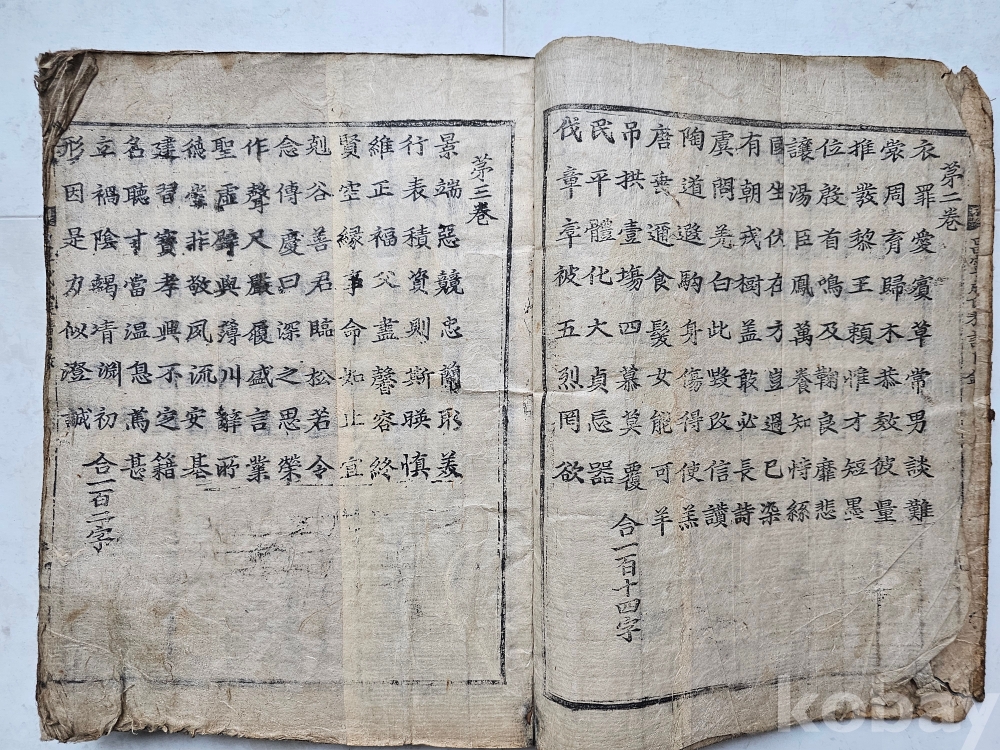 苐二卷
衣罪愛賓草常男談難
裳周育歸木恭效彼量
推發黎王賴惟才短墨
位殷首鳴及鞠良靡悲
讓湯臣鳳萬養知恃絲
國坐伏在方豈過已染
有朝戎樹盖敢必長詩
虞問羌白此毀改信讚
陶道遐駒身傷得使羔
唐喪邇食髮女能可羊
吊拱壹塲四慕莫覆
民平體化大貞忘器
伐章章被五烈罔欲
合一百十四字
苐三卷
景端惡競忠蘭取羡
行表積資則斯暎慎
維正福父盡馨容終
賢空緣事命如止宜
剋谷善君臨松若令
念傳慶曰深之思榮
作聲尺嚴履盛言業
聖虛璧與薄川辭所
德堂非敬夙流安基
建習寶孝興不定籍
名聽寸當溫息篤甚
立禍陰竭凊淵初
形因是力似澄誠
合一百二字
kobay